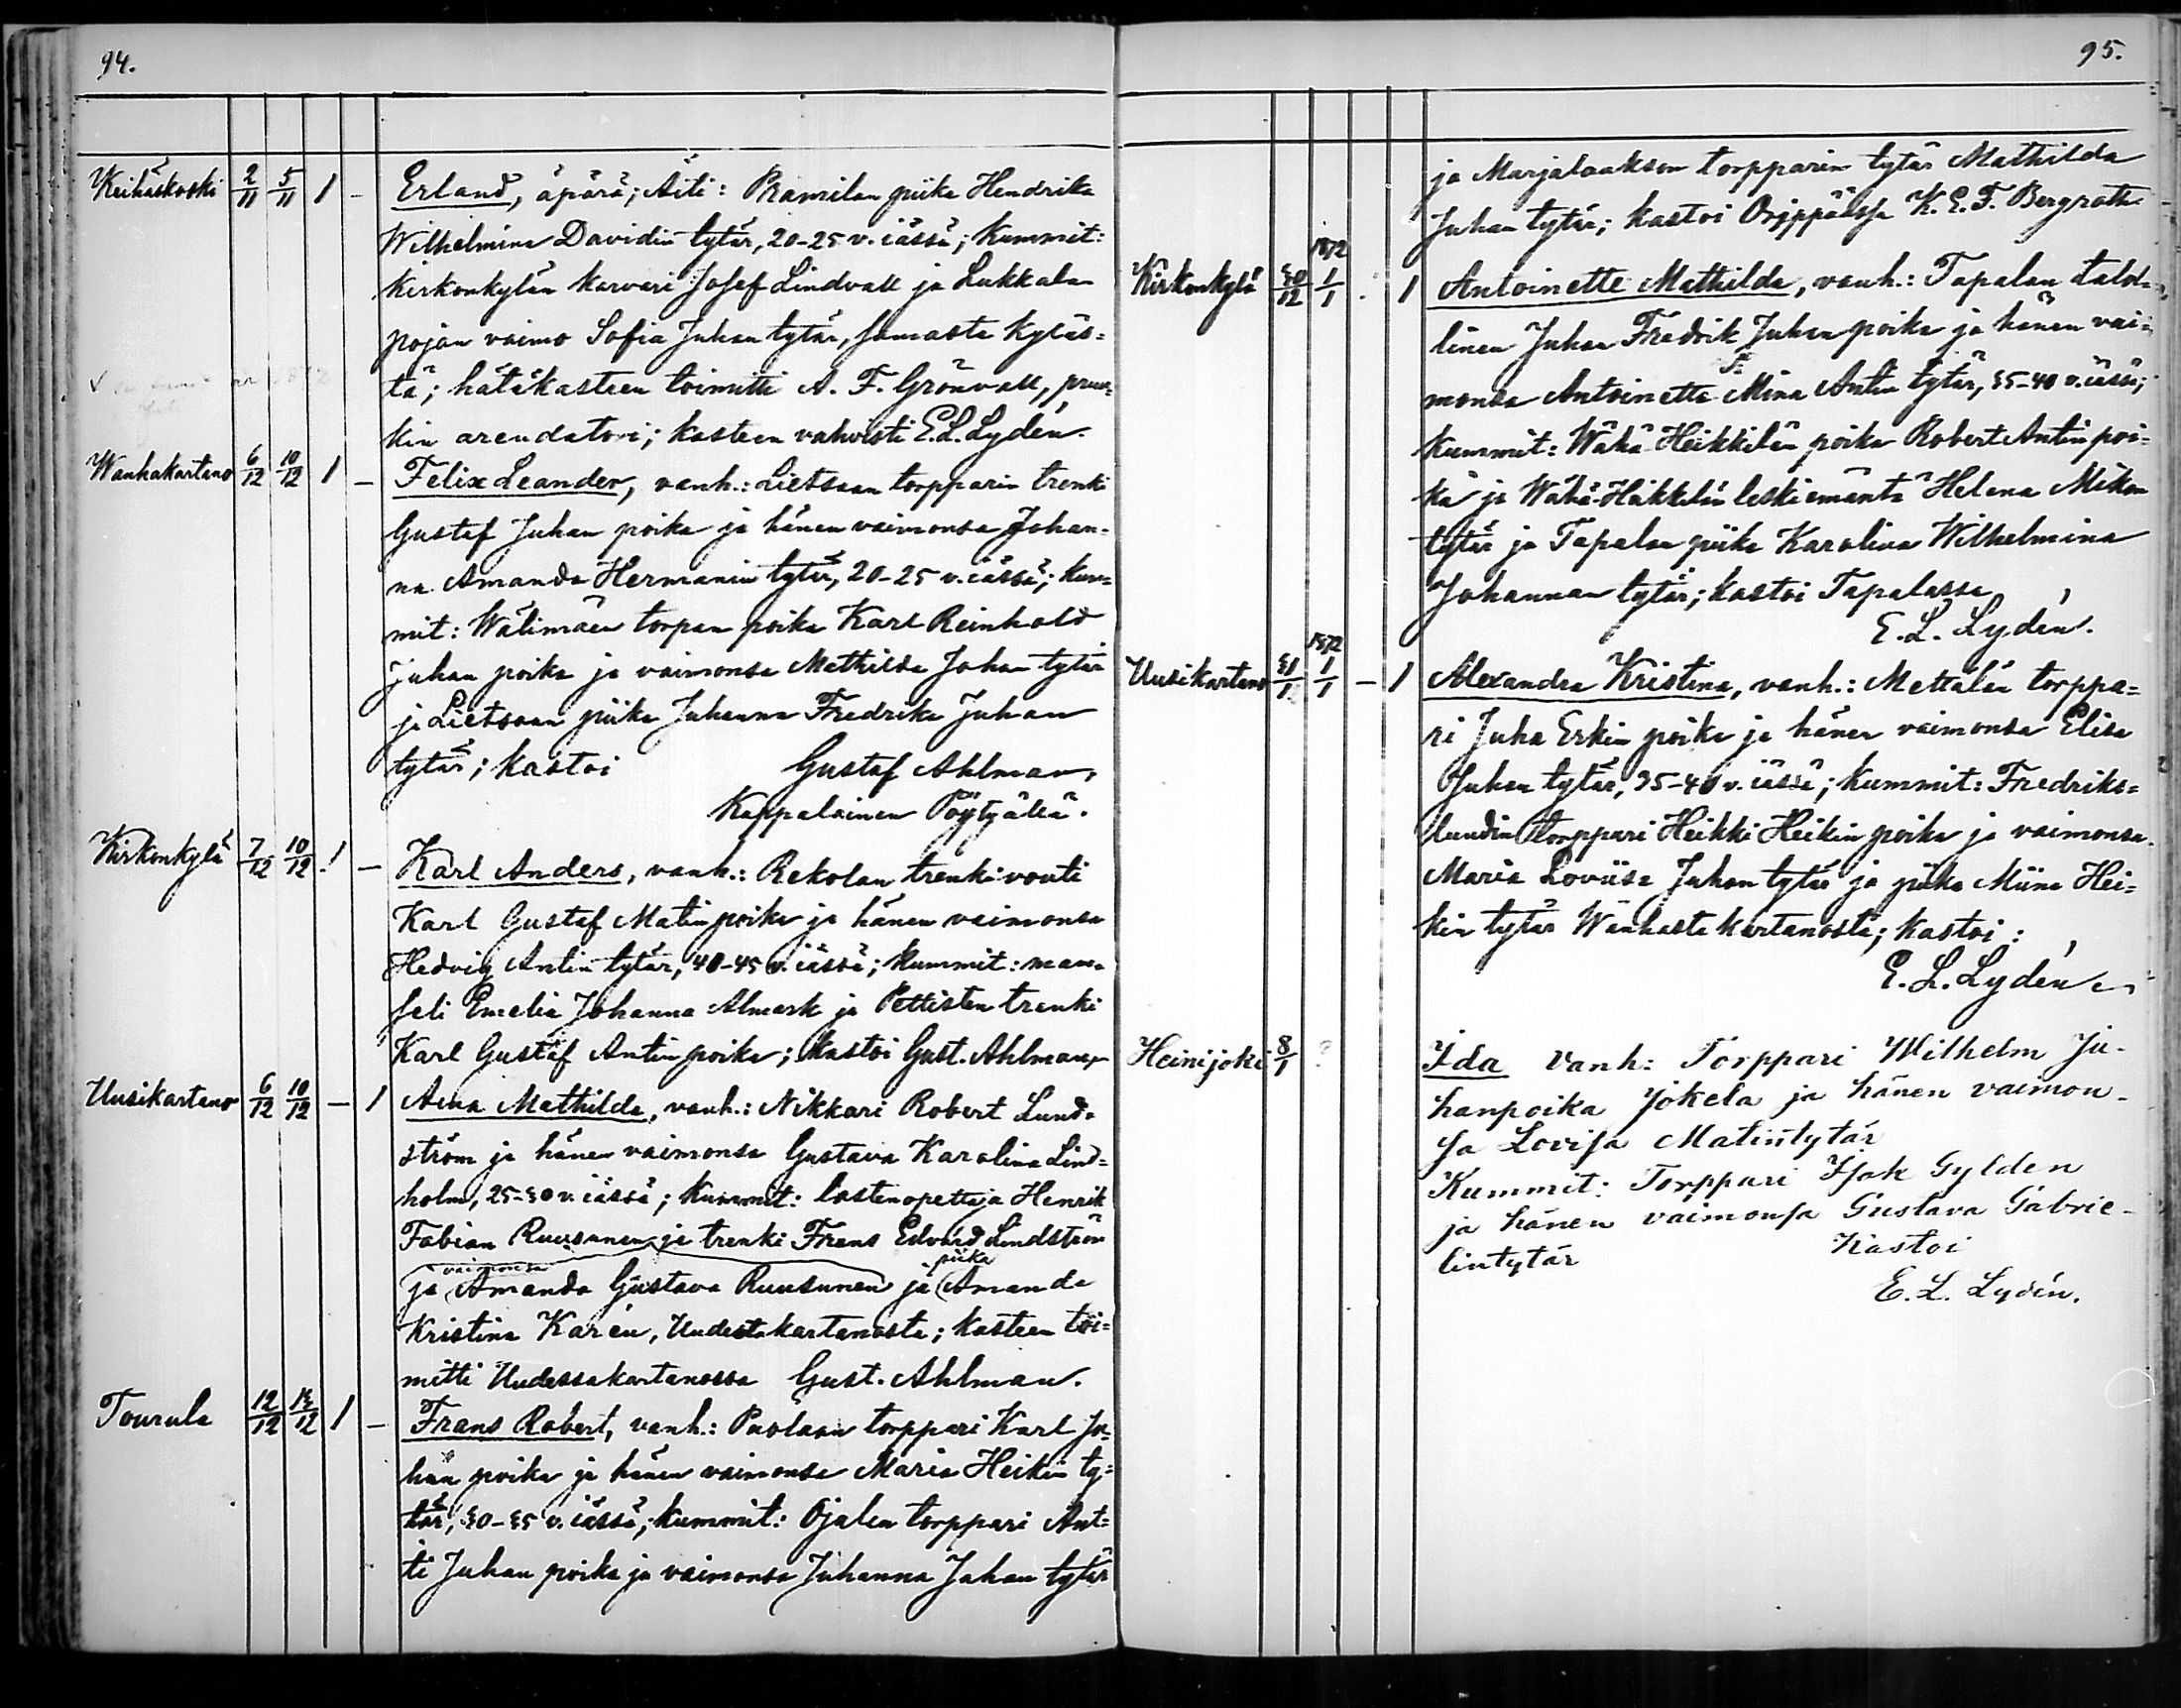 94.
Keihäskoski 2/11 5/11 1 – Erland, äpärä; Äiti: Pramilan piika Hendrika
Wilhelmina Davidin tytär, 20-25 v. iässä; Kummit:
Kirkonkylän karvari Josef Lindvall ja Lukkalan
pojan vaimo Sofia Juhan tytär, samasta kyläs=
tä; hätäkasteen toimitti A. F. Grönvall, pruu-
kin arendatori; kasteen vahvisti E.L. Lydén.
Wanhakartano 6/12 10/12 1 – Felix Leander, vanh.: Lietsaan torpparin trenki
Gustaf Juhan poika ja hänen vaimonsa Johan-
na Amanda Hermanin tytär, 20-25 v. iässä; kum=
mit: Wälimäen torpan poika Karl Reinhold
Juhan poika ja vaimonsa Mathilda Johan tytär
ja Lietsaan piika Juhanna Fredrika Juhan
tytär; kastoi Gustaf Ahlman,
Kappalainen Pöytyällä.
Kirkonkylä 7/12 10/12 1 – Karl Anders, vanh.: Rekolan trenki-vouti
Karl Gustaf Matin poika ja hänen vaimonsa
Hedvig Antin tytär, 40-45 v. iässä; kummit: mam-
seli Emelia Johanna Almark ja Pettisten trenki
Karl Gustaf Antin poika; kastoi Gust. Ahlman
Uusikartano 6/12 10/12 – 1 Aina Mathilda, vanh.: Nikkari Robert Lund-
ström ja hänen vaimonsa Gustava Karolina Lind=
holm, 25-30 v. iässä; kummit: lastenopettaja Henrik
Fabian Ruusunen ja trenki Frans Edvard Lindström
vaimonsa piika
ja Amanda Gustava Ruusunen ja Amanda
Kristina Karén, Uudestakartanosta; kasteen toi=
mitti Uudessakartanossa Gust. Ahlman.
Tourula 12/12 13/12 1 – Frans Robert, vanh.: Paolaan torppari Karl Jo=
han poika ja hänen vaimonsa Maria Heikin ty=
tär, 30-35 v. iässä; kummit: Ojalan torppari Ant=
ti Juhan poika ja vaimonsa Juhanna Johan tytär
95.
ja Marjalaakson torpparin tytär Mathilda
Juhan tytär; kastoi Orjppäässä K. E. F. Bergroth
1872
Kirkonkylä 30/12 1/1 . 1 Antoinette Mathilda, vanh.: Tapalan talol-
linen Juhan Fredrik Juhan poika ja hänen vai=
monsa Antoinetta Mina Antin tytär, 35-40 v. iässä;
kummit: Wähä-Heikkilän poika Robert Antin poi=
ka ja Wähä-Häkkilän leskiemäntä Helena Mikon
tytär ja Tapalan piika Karolina Wilhelmina
Johannan tytär; kastoi Tapalassa
E. L. Lydén.
1872
Uusikartano 31/1 1/1 – 1 Alexandra Kristina, vanh.: Mettälän torppa=
ri Juha Erkin poika ja hänen vaimonsa Elisa
Juhan tytär, 35-40 v. iässä; kummit: Fredriks=
lundin torppari Heikki Heikin poika ja vaimonsa
Maria Loviisa Juhan tytär ja piika Miina Hei=
kin tytär Wanhasta kartanosta; kastoi:
E. L. Lydén
Heinijoki 8/1 ? Ida vanh: Torppari Wilhelm Ju-
hanpoika Jokela ja hänen vaimon-
sa Lovisa Matintytär
Kummit: Torppari Isak Gylden
ja hänen vaimonsa Gustava Gabrie-
lintytär Kastoi
E. L. Lydén.